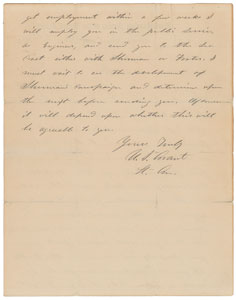 get employment within a few weeks I
will employ you in the public service
as Engineer, and send you to the
either with Sherman or Foster. I
must wait to see the development of
Sherman's campaign and determine upon
the next before sending you. Of course
it will depend upon whether this will
be agreeable to you.
Yours Truly
U. S. Grant
Lt. Gen.